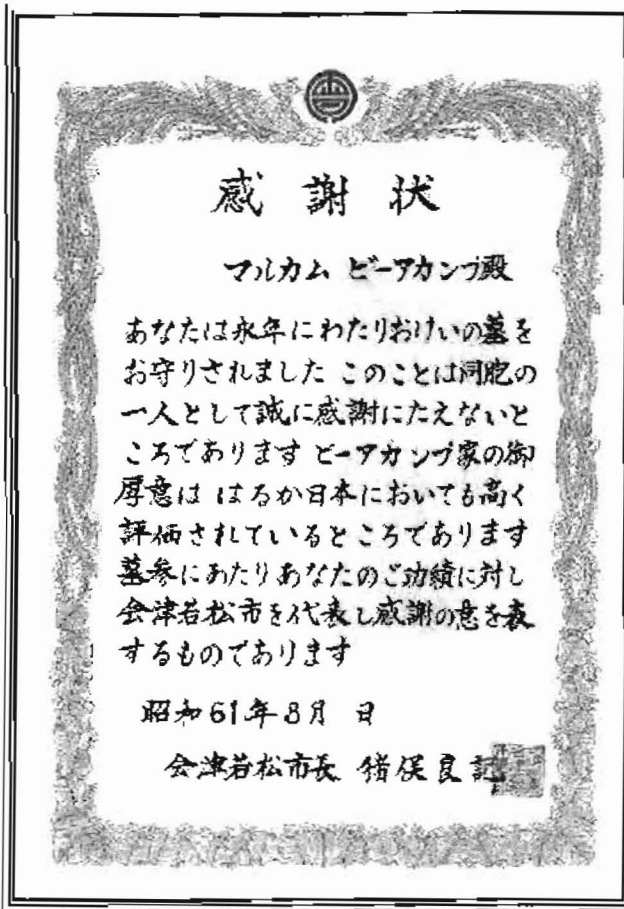 感謝状
マルカム ビーアカンプ殿
あなたは永年にわたりおけいの墓を
お守りされました このことは同胞の
一人として誠に感謝にたえないと
ころであります ビーアカンプ家の御
厚意は はるか日本においても高く
評価されているところであります
墓参にあたりあなたのご功績に対し
会津若松市を代表し感謝の意を表
するものであります
昭和61年8月 日
会津若松市長 猪俣良記